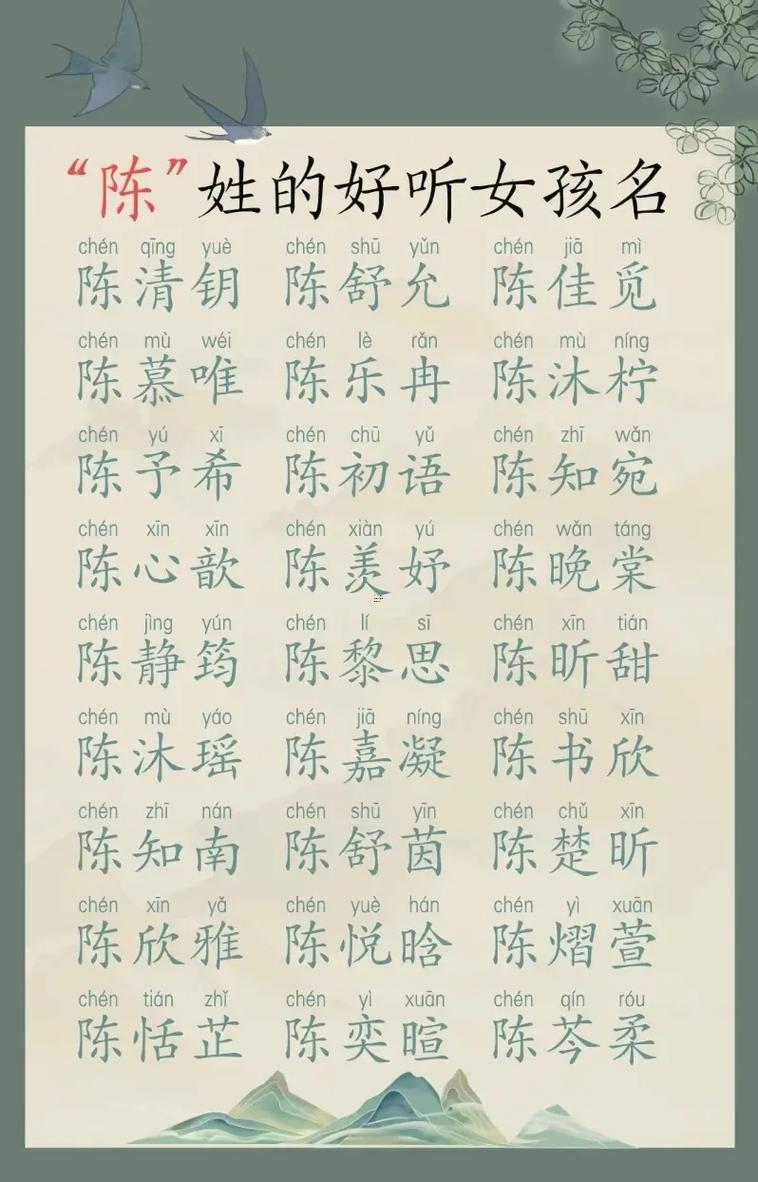 “陈”姓的好听女孩名
chén qīng yuè chén shū yǔn chén jiā mì
陈清钥 陈舒允 陈佳觅
chén mù wéi chén lè rǎn chén mù níng
陈慕唯 陈乐冉 陈沐柠
chén yú xī chén chū yǔ chén zhī wǎn
陈予希 陈初语 陈知宛
chén xīn xīn chén xiàn yú chén wǎn táng
陈心歆 陈羡妤 陈晚棠
chén jìng yún chén lí sī chén xīn tián
陈静筠 陈黎思 陈昕甜
chén mù yáo chén jiā níng chén shū xīn
陈沐瑶 陈嘉凝 陈书欣
chén zhī nán chén shū yīn chén chǔ xīn
陈知南 陈舒茵 陈楚昕
chén xīn yǎ chén yuè hán chén yì xuān
陈欣雅 陈悦晗 陈熠萱
chén tián zhǐ chén yì xuān chén qín róu
陈恬芷 陈奕暄 陈芩柔